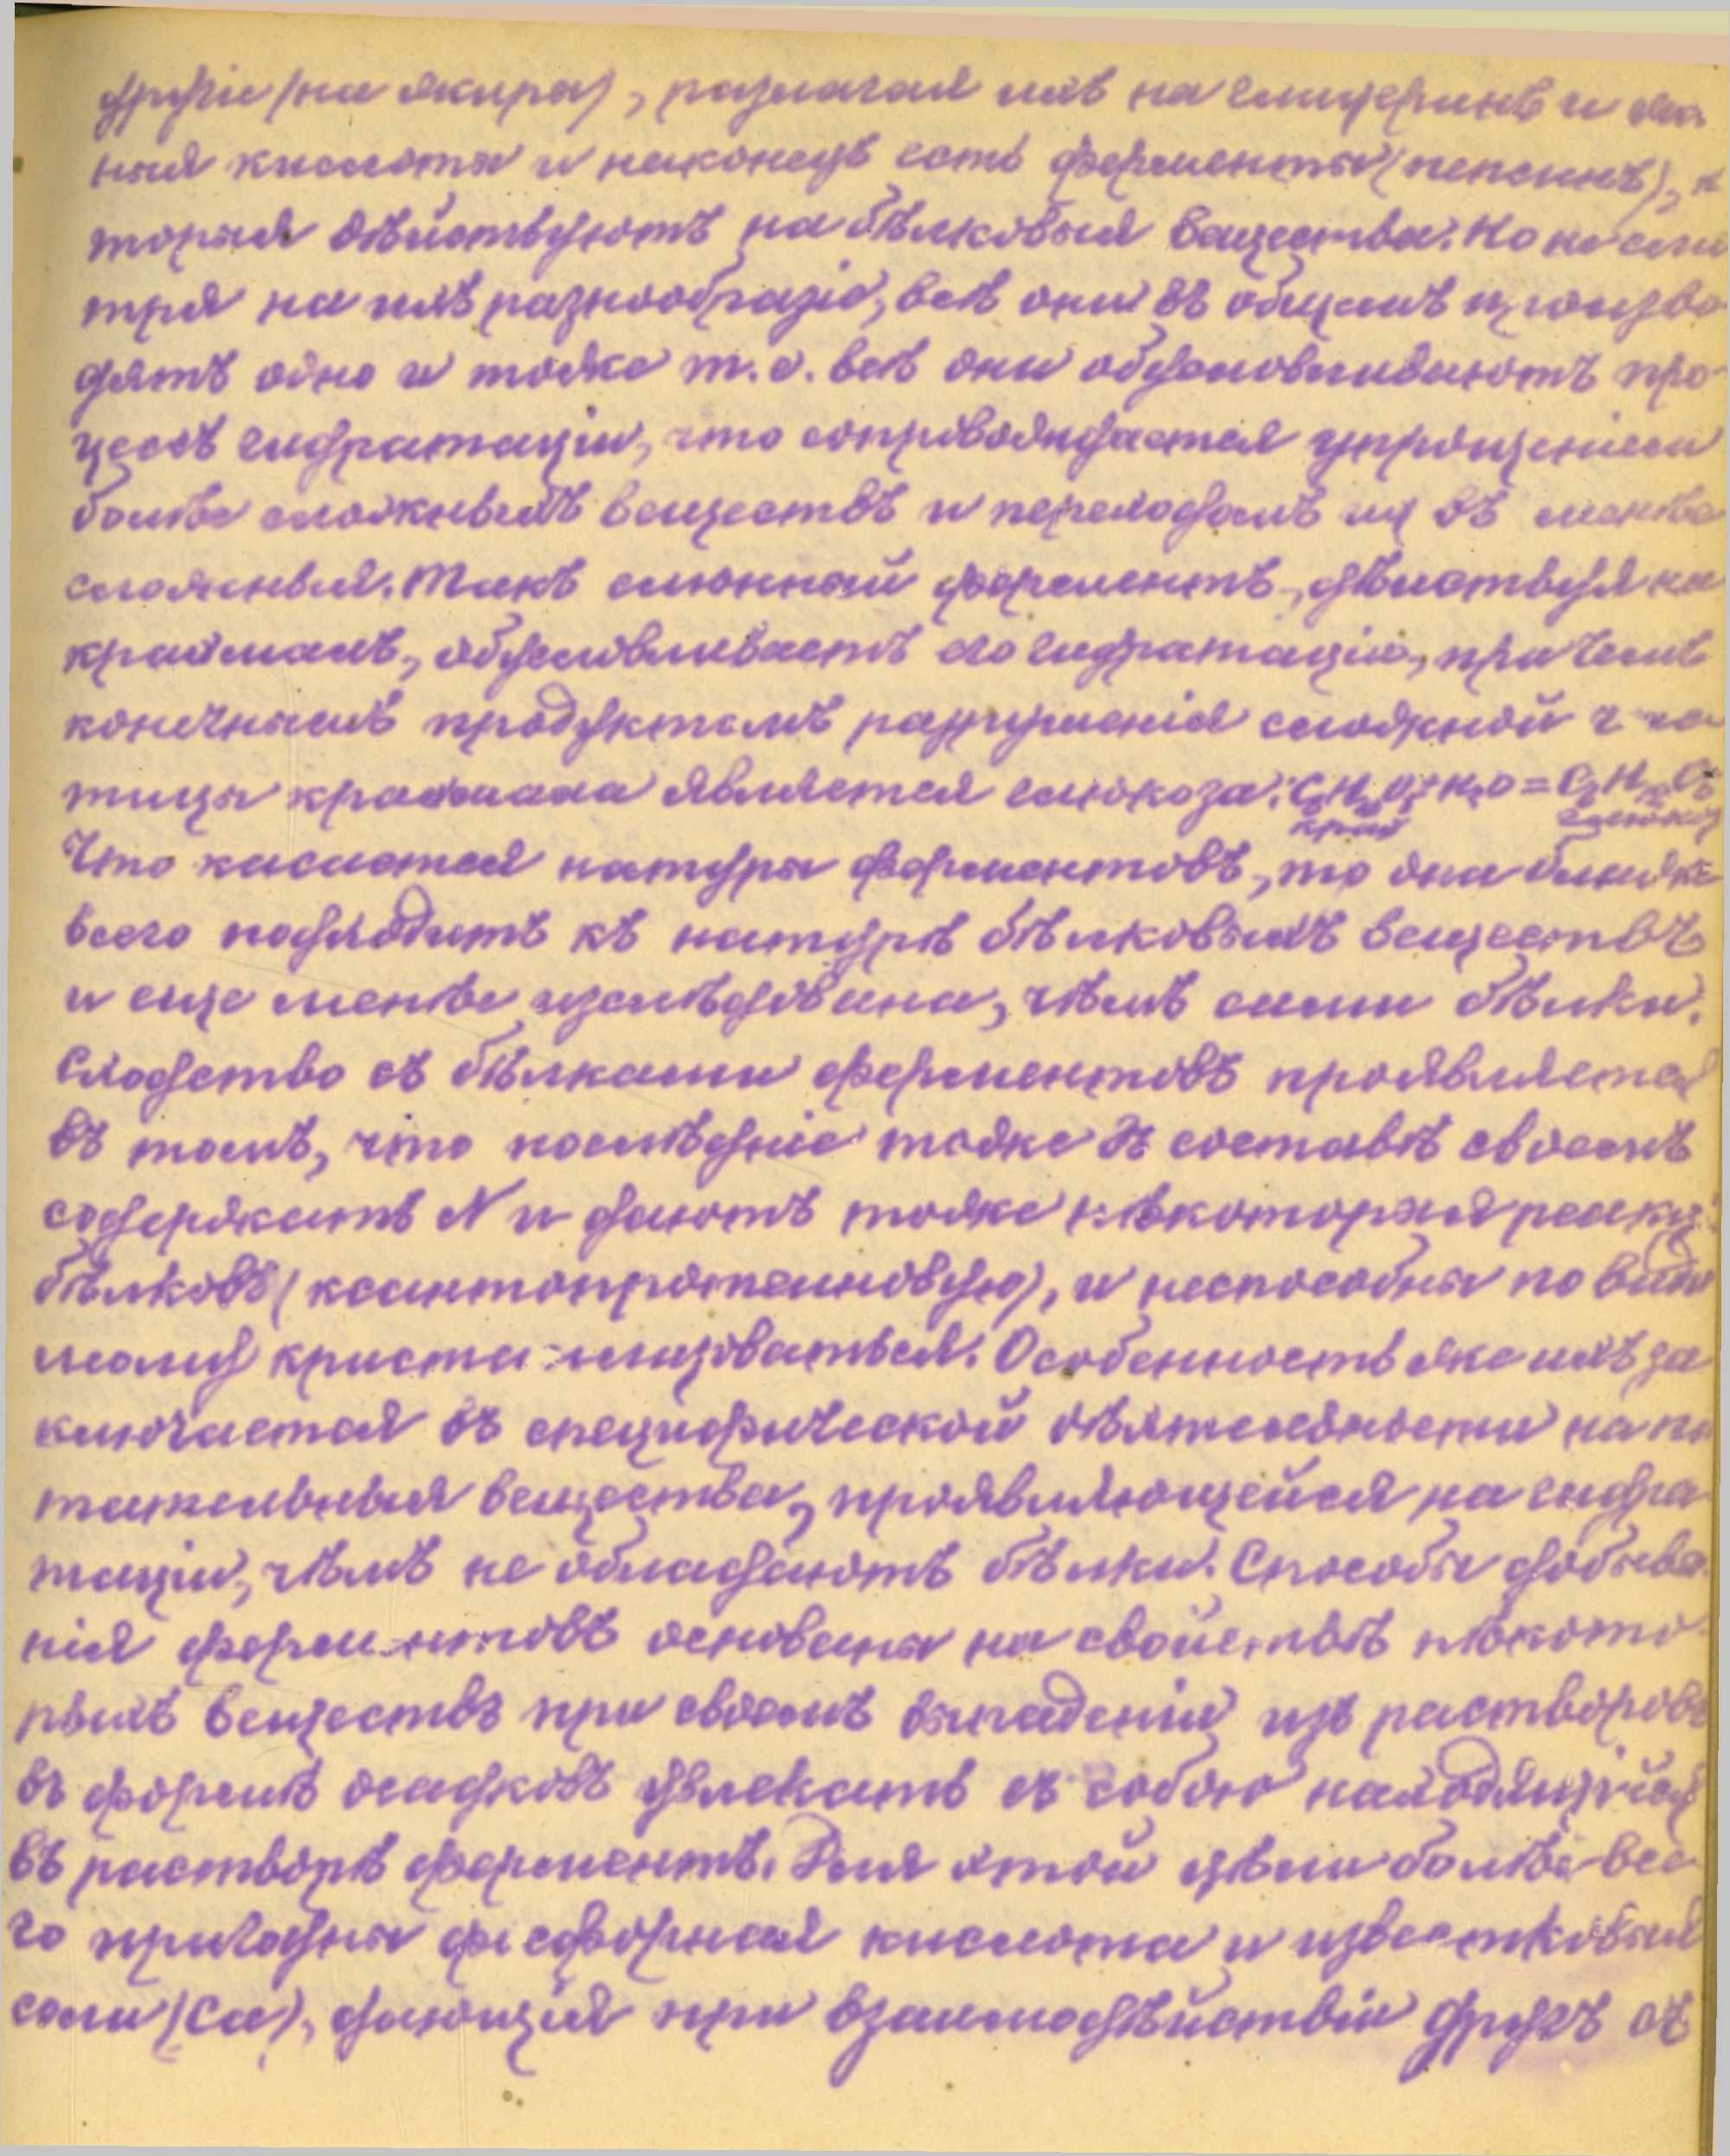 другіе (на жиры), разлагая ихъ на глицеринъ и жи
ныя кислоты и наконецъ есть ферменты (пепсинъ), к
торыя дѣйствуютъ на бѣлковыя вещества. Но не смо
тря на ихъ разнообразіе, всѣ они въ общемъ произво
дятъ одно и тоже т.е. всѣ они обусловливаютъ про-
цессъ гидратаціи, что сопровождается упрощеніем
болѣе сложныхъ веществъ и переходомъ их въ менѣе
сложныя. Такъ слюнный ферментъ, дѣйствуя на
крахмалъ, обусловливаетъ его гидратацію, при чемъ
конечнымъ продуктомъ разрушенія сложной ча
тицы крахмала является глюкоза: C6H10O5+H2O = C6H12O6
край глюкоз
Что касается натуры ферментовъ, то она ближе
всего подходитъ къ натурѣ бѣлковыхъ веществъ
и еще менѣе изслѣдована, чѣмъ сами бѣлки.
Сходство съ бѣлками ферментовъ проявляется
въ томъ, что послѣдніе тоже въ составѣ своемъ
содержатъ N и даютъ тоже нѣкоторыя реакц.
бѣлковъ (ксантопротеиновую), и неспособны по види
мому кристаллизоваться. Особенность же ихъ за
ключается въ специфической дѣятельности на пи
тательныя вещества, проявляющейся на гидра
таціи, чѣмъ не обладаютъ бѣлки. Способы добыва-
нія ферментовъ основаны на свойствѣ нѣкото-
рыхъ веществъ при своемъ выпаденіи изъ растворовъ
въ формѣ осадковъ увлекать съ собою находящійся
въ растворѣ ферментъ. Для этой цѣли болѣе все-
го пригодны фосфорная кислота и известковыя
соли (Ca), дающія при взаимодѣйствіи другъ съ